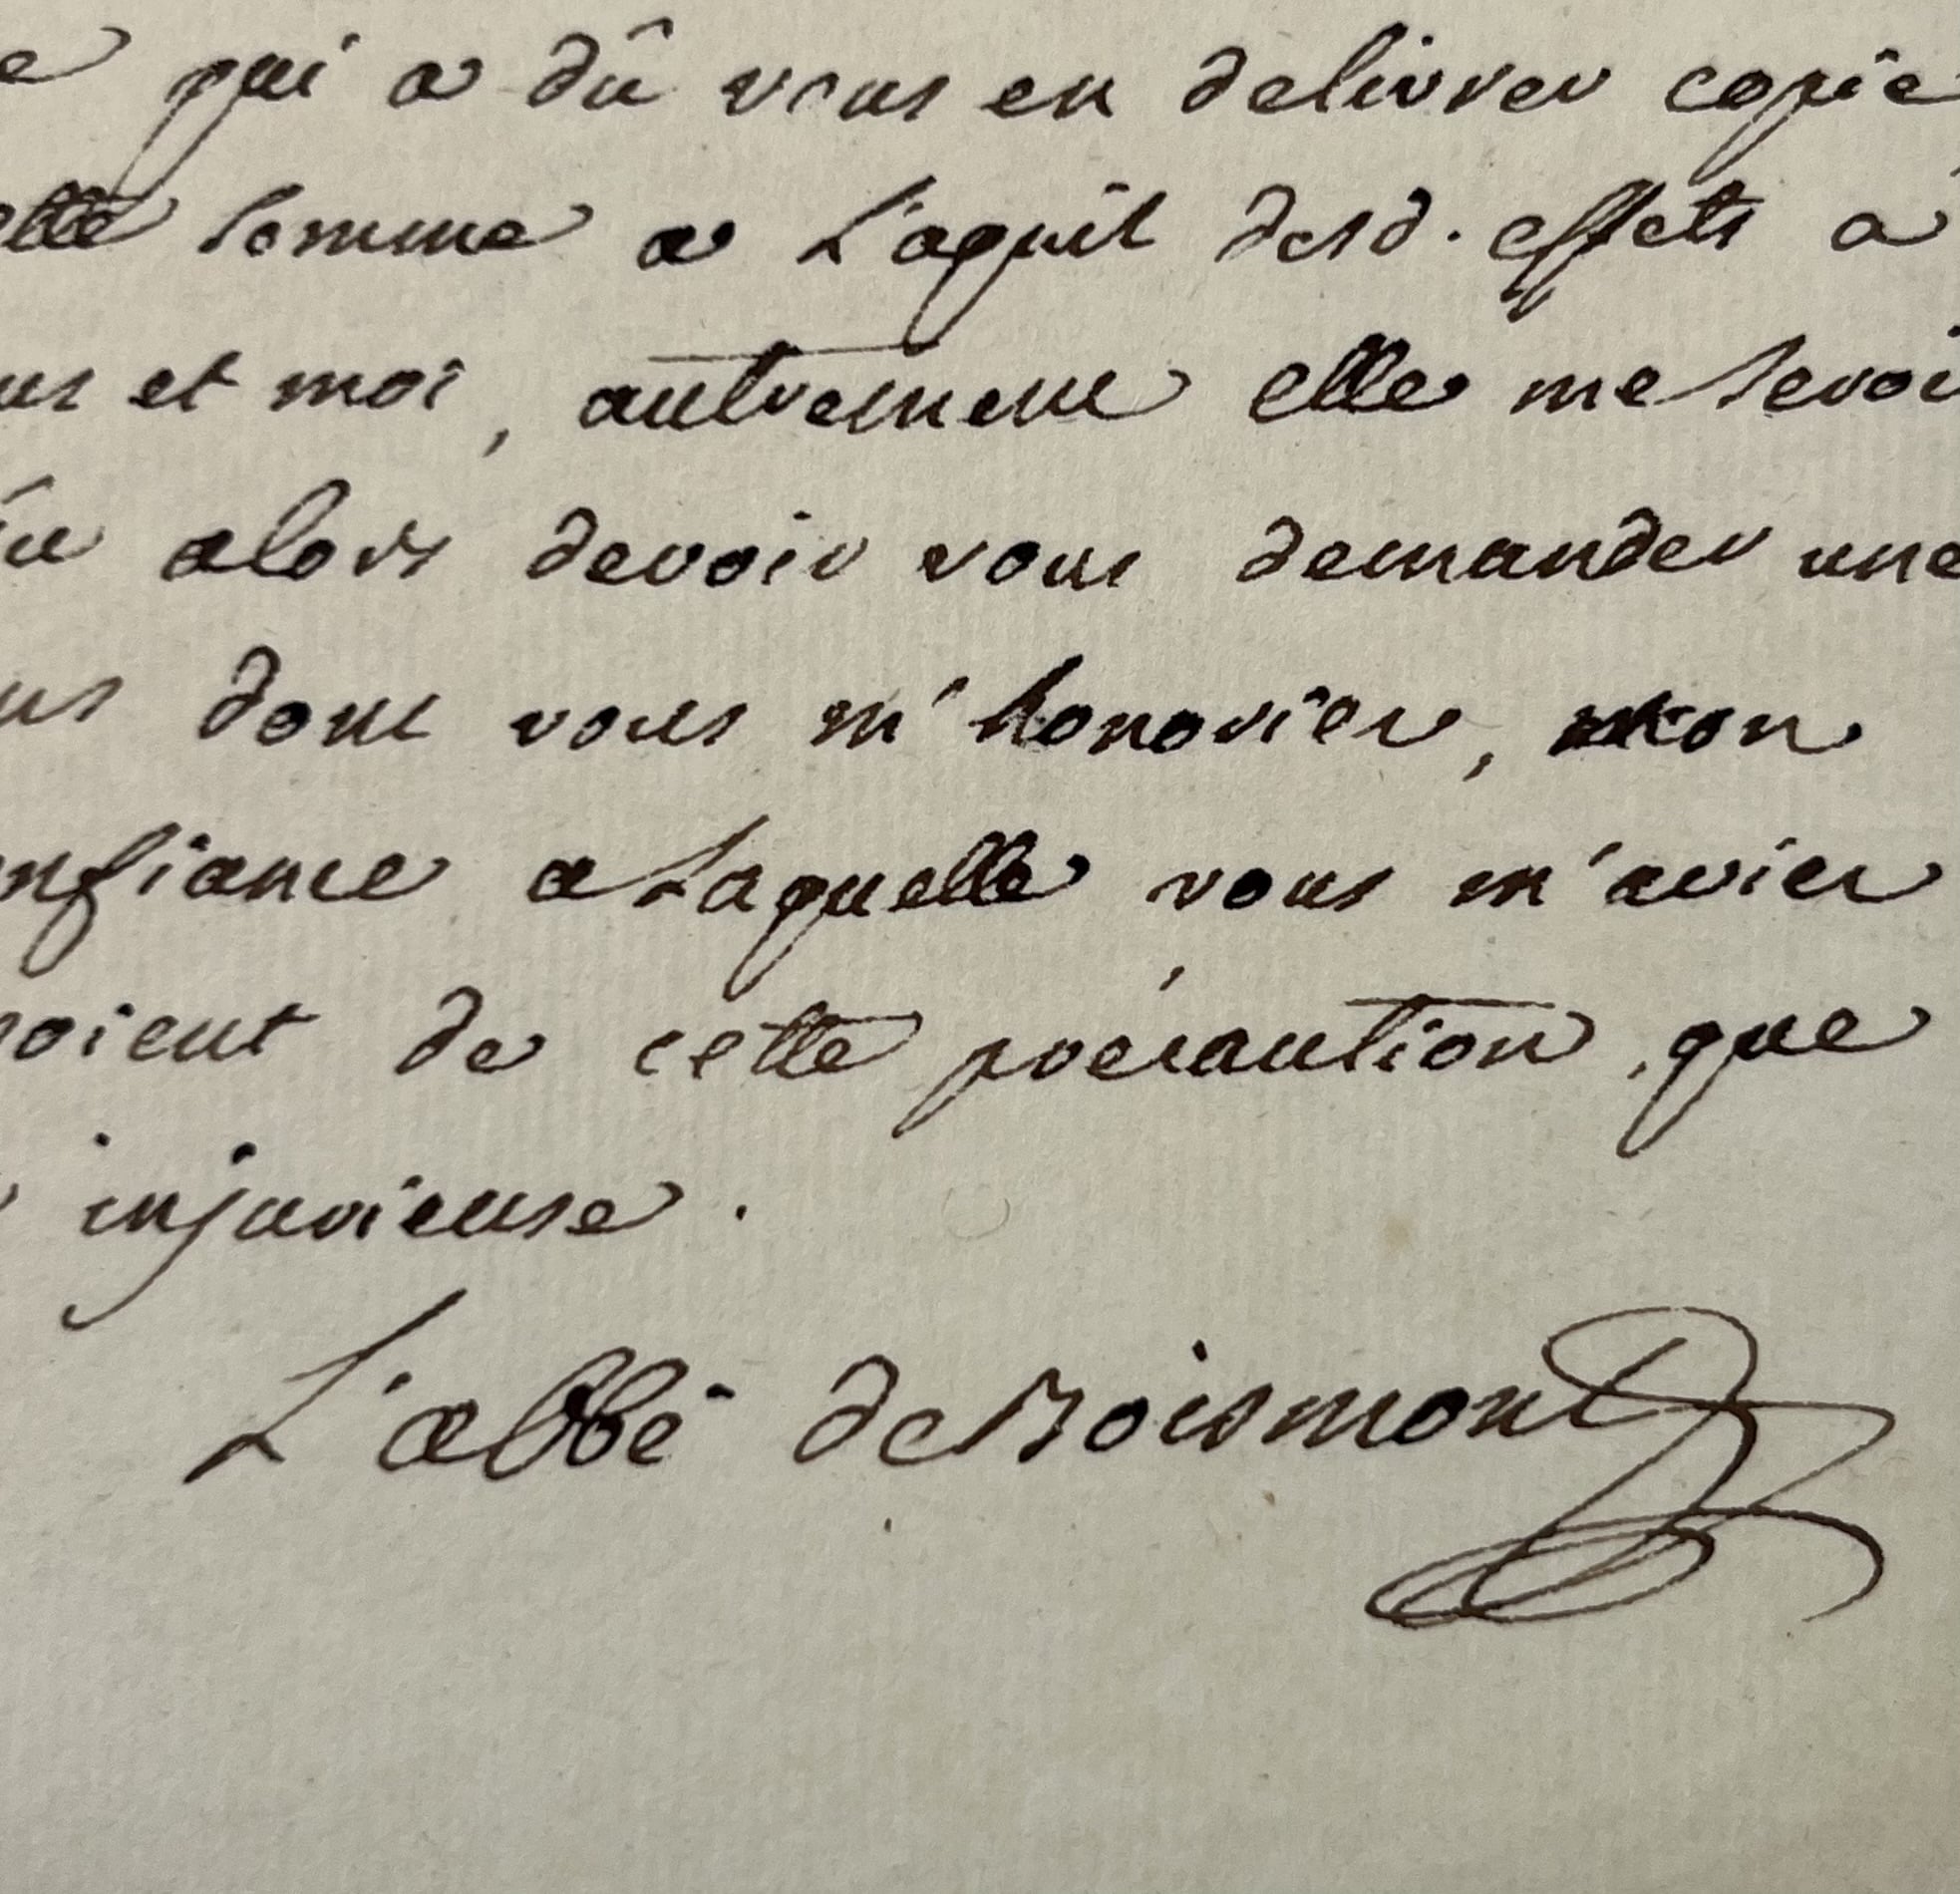 qui a dû vous en delivrer copie
somme a L'aquit desd. effets a
et moi, autrement elle me seroi
alors devoir vous demander une
dont vous m'honoriez, mon
nfiance a Laquelle vous m'aviez
oient de cette précaution, que
injurieuse.
L'abbé de Boismont